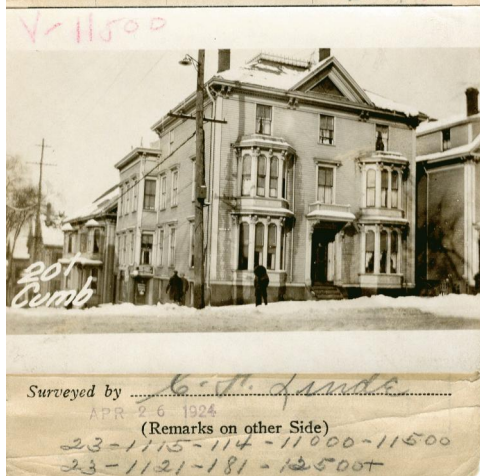 V-11500
201
Cumb
Surveyed by C. P. Linde
APR 26 1924
(Remarks on other Side)
23-1115-114-11000-11500
23-1121-181-12500+